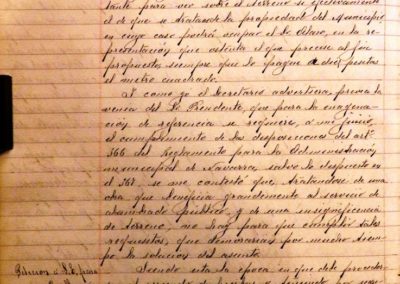 tante para ver sobre el terreno si efectivamente
el de que se trata es de la propiedad del Municipio
en cuyo caso podrá ocupar el Sr. Alzaro, en la re-
presentación que ostenta el que precise al fin
propuesto siempre que lo pague a diez pesetas
el metro cuadrado.
Y como yo el Secretario advirtiera, previa la
venia del Sr. Presidente, que para la enagena-
ción de referencia se requiere, a mi juicio,
el cumplimiento de las disposiciones del artº
366 del Reglamento para la Administración
municipal de Navarra, salvo lo dispuesto en
el 367, se me contestó que, tratándose de una
obra que beneficia grandemente al servicio de
alumbrado público y de una insignificancia
de terreno, no hay para que cumplir tales
requisitos, que demorarían por mucho tiem-
po la solución del asunto.
Siendo esta la época en que debe proveder-